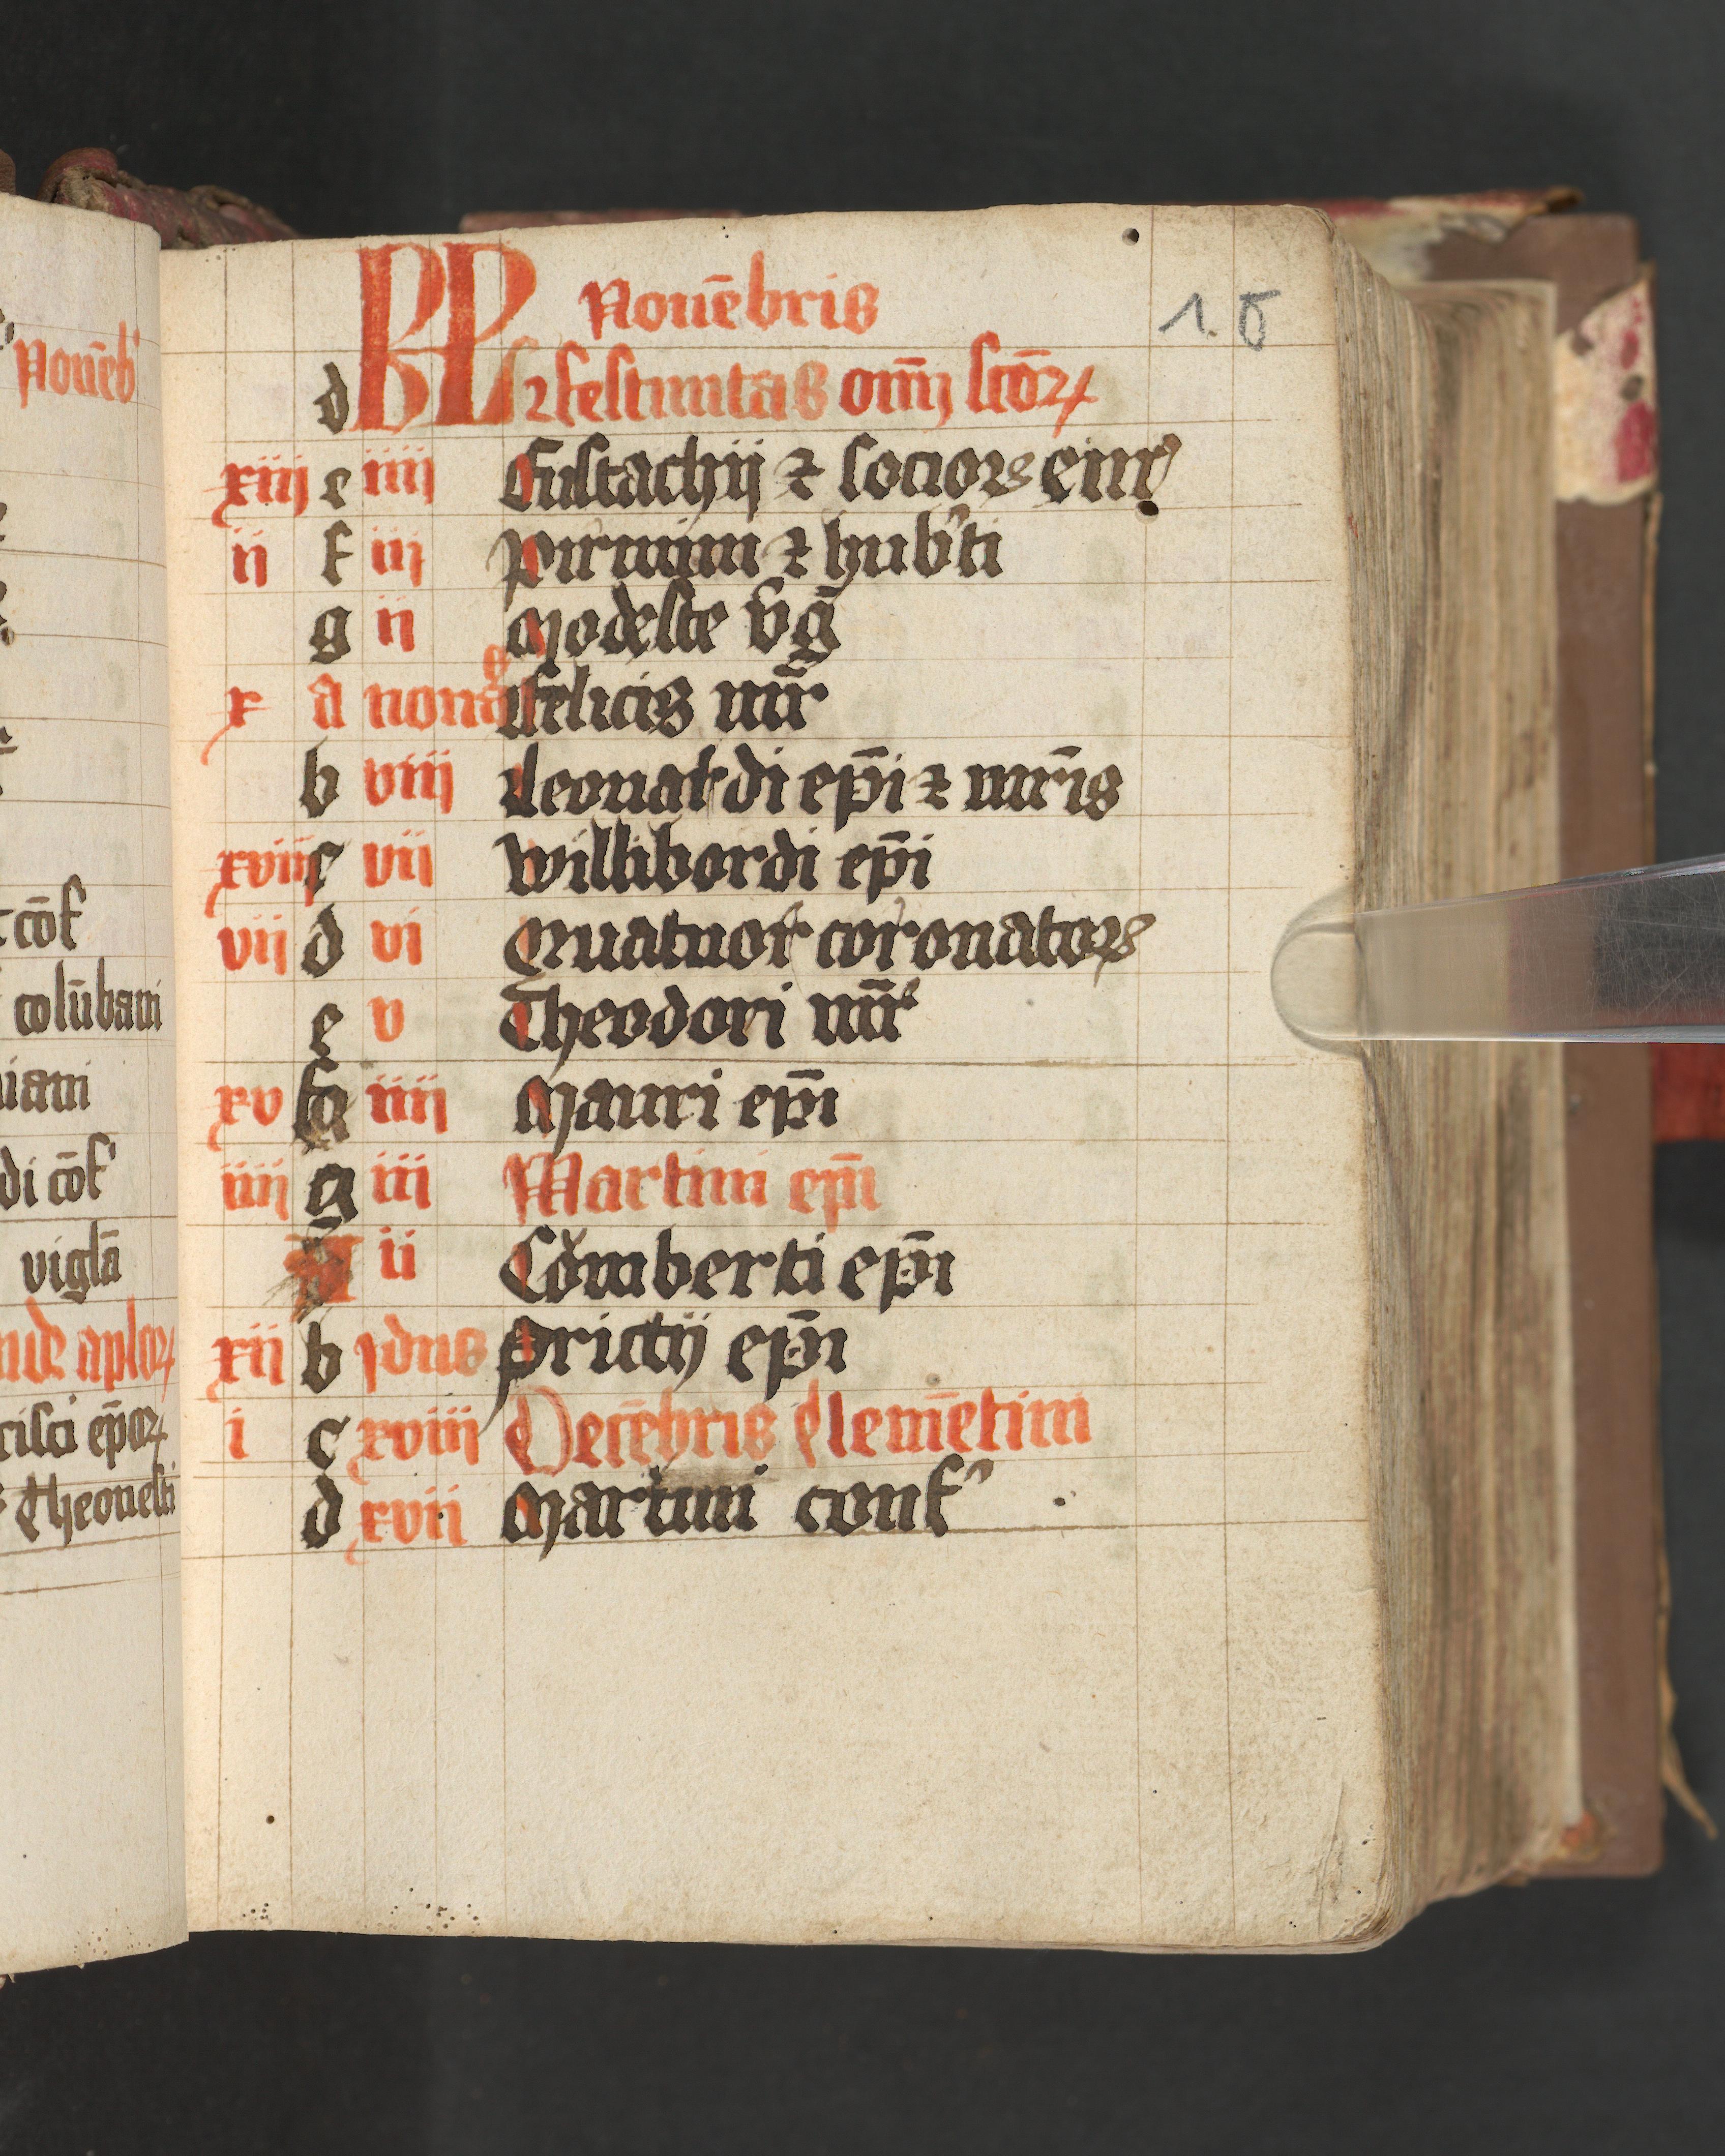 Nouēb'
t cōf
colūbani
iani
di cōf'
vigla̅
ude aplorꝝ
cisci ep̄orꝝ
Theonesti
KL Nouēbris
15
d Festiuitas om̄ scōꝝ
xiij e iiij Eustachij ⁊ socioꝝ eiuꝰ
ii f iij Pirmini ⁊ hub'ti
g ii Modeste v̄ḡ
x a nonas Felicis mr̄
b viij Leonardi ep̄i ⁊ mr̄is
xviij c vii Willibordi ep̄i
vii d vi Quatuor coronatoꝝ
e v Theodori mr̄
xv f iiij Mauri ep̄i
iiij g iii Martini ep̄i
A ii Cōmberti ep̄i
xii b ydus Prictij ep̄i
i c xviij Decēbris Clemētini
d xvii Martini conf'